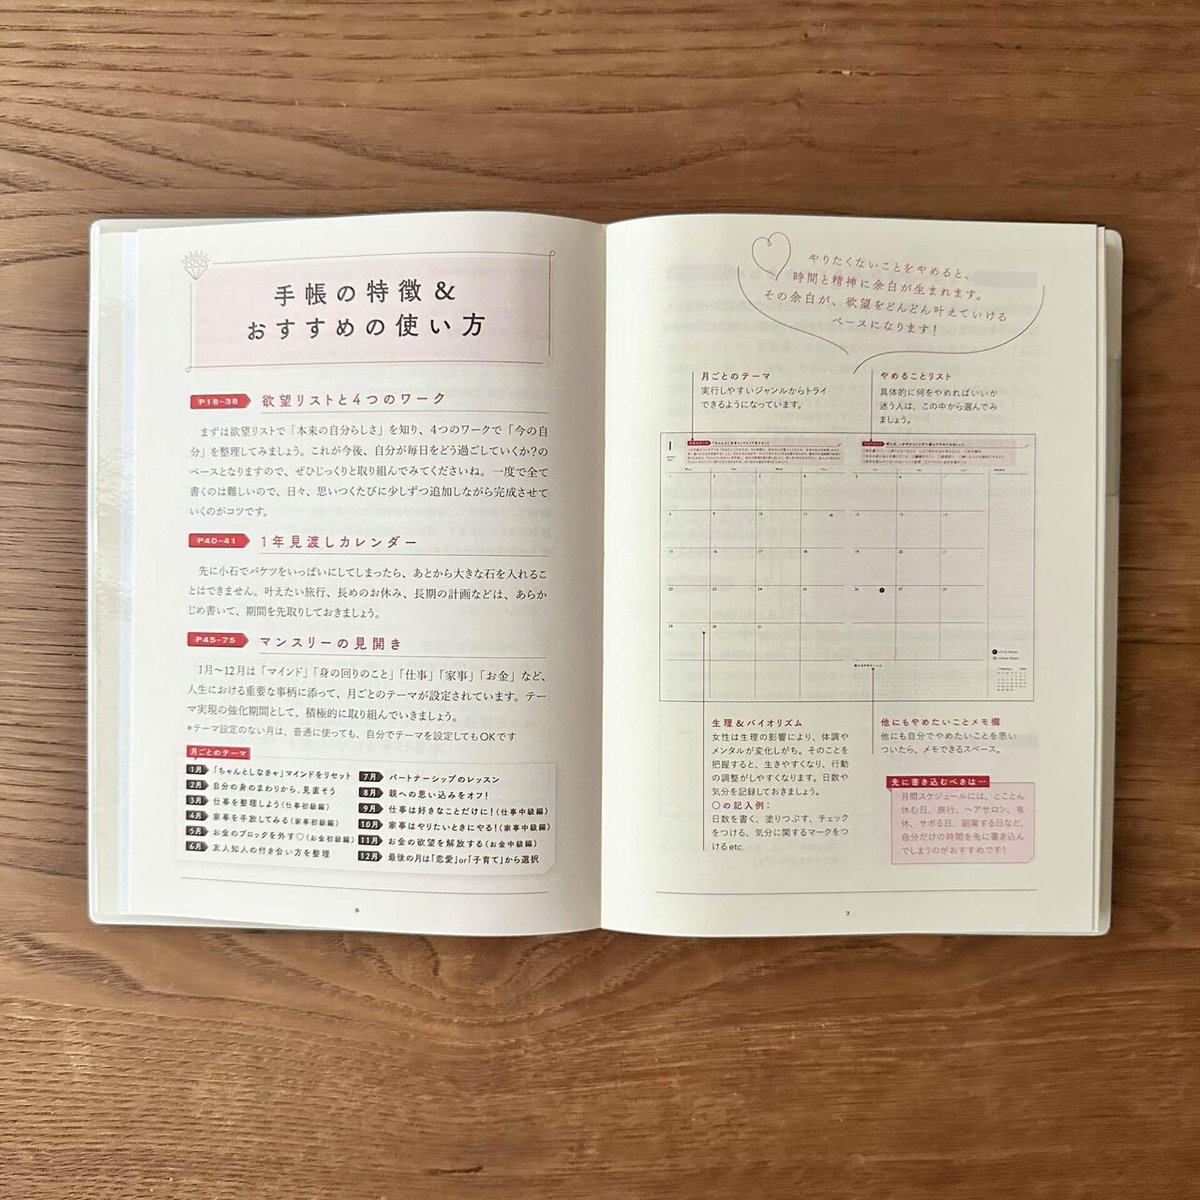 手帳の特徴&
おすすめの使い方
P18-38 欲望リストと4つのワーク
まずは欲望リストで「本来の自分らしさ」を知り、4つのワークで「今の自
分」を整理してみましょう。これが今後、自分が毎日をどう過ごしていくか?の
ベースとなりますので、ぜひじっくりと取り組んでみてくださいね。一度で全て
書くのは難しいので、日々、思いつくたびに少しずつ追加しながら完成させて
いくのがコツです。
P40-41 1年見渡しカレンダー
先に小石でバケツをいっぱいにしてしまったら、あとから大きな石を入れるこ
とはできません。叶えたい旅行、長めのお休み、長期の計画などは、あらか
じめ書いて、期間を先取りしておきましょう。
P45-75 マンスリーの見開き
1月〜12月は「マインド」「身の回りのこと」「仕事」「家事」「お金」など、
人生における重要な事柄に添って、月ごとのテーマが設定されています。テー
マ実現の強化期間として、積極的に取り組んでいきましょう。
*テーマ設定のない月は、普通に使っても、自分でテーマを設定してもOKです
月ごとのテーマ
1月 「ちゃんとしなきゃ」マインドをリセット
2月 自分の身のまわりから、見直そう
3月 仕事を整理しよう(仕事初級編)
4月 家事を手放してみる(家事初級編)
5月 お金のブロックを外す♡(お金初級編)
6月 友人知人の付き合い方を整理
7月 パートナーシップのレッスン
8月 親への思い込みをオフ!
9月 仕事は好きなことだけに!(仕事中級編)
10月 家事はやりたいときにやる!(家事中級編)
11月 お金の欲望を解放する(お金中級編)
12月 最後の月は「恋愛」or「子育て」から選択
6
やりたくないことをやめると、
時間と精神に余白が生まれます。
その余白が、欲望をどんどん叶えていける
ベースになります!
月ごとのテーマ
実行しやすいジャンルからトライ
できるようになっています。
やめることリスト
具体的に何をやめればいいか
迷う人は、この中から選んでみ
ましょう。
1
生理&バイオリズム
女性は生理の影響により、体調や
メンタルが変化しがち。そのことを
把握すると、生きやすくなり、行動
の調整がしやすくなります。日数や
気分を記録しておきましょう。
〇の記入例:
日数を書く、塗りつぶす、チェック
をつける、気分に関するマークをつ
けるetc.
他にもやめたいことメモ欄
他にも自分でやめたいことを思い
ついたら、メモできるスペース。
先に書き込むべきは…
月間スケジュールには、とことん
休む日、旅行、ヘアサロン、有
休、サボる日、副業する日など、
自分だけの時間を先に書き込ん
でしまうのがおすすめです!
7